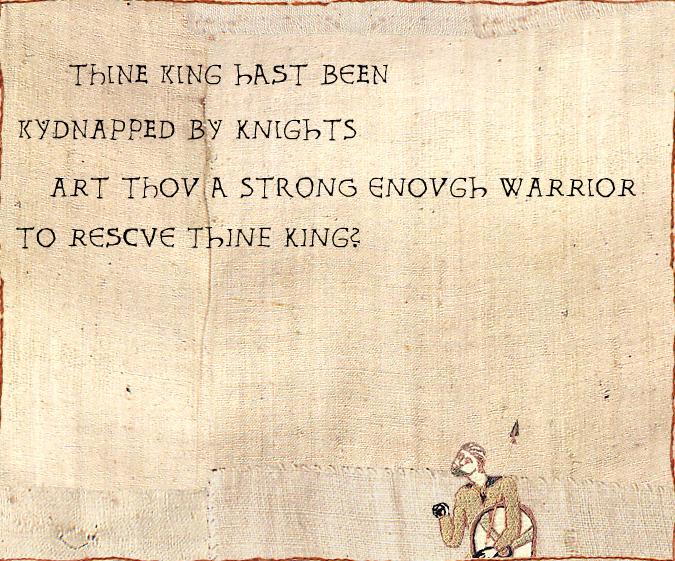 THINE KING HAST BEEN
KYDNAPPED BY KNIGHTS
ART THOV A STRONG ENOVGH WARRIOR
TO RESCVE THINE KING?